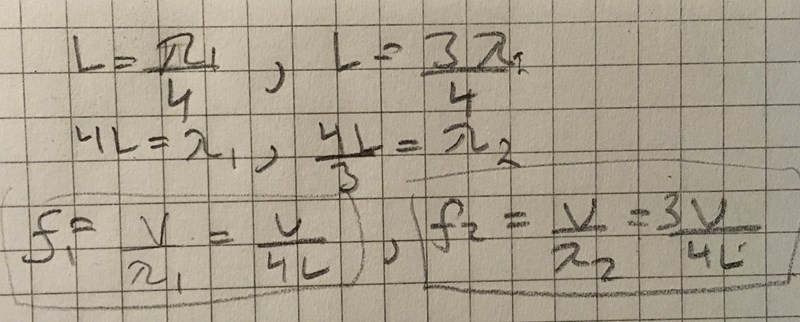 L = λ₁/4 , L = 3λ₂/4
4L = λ₁ , 4L/3 = λ₂
f₁ = V/λ₁ = V/4L , f₂ = V/λ₂ = 3V/4L